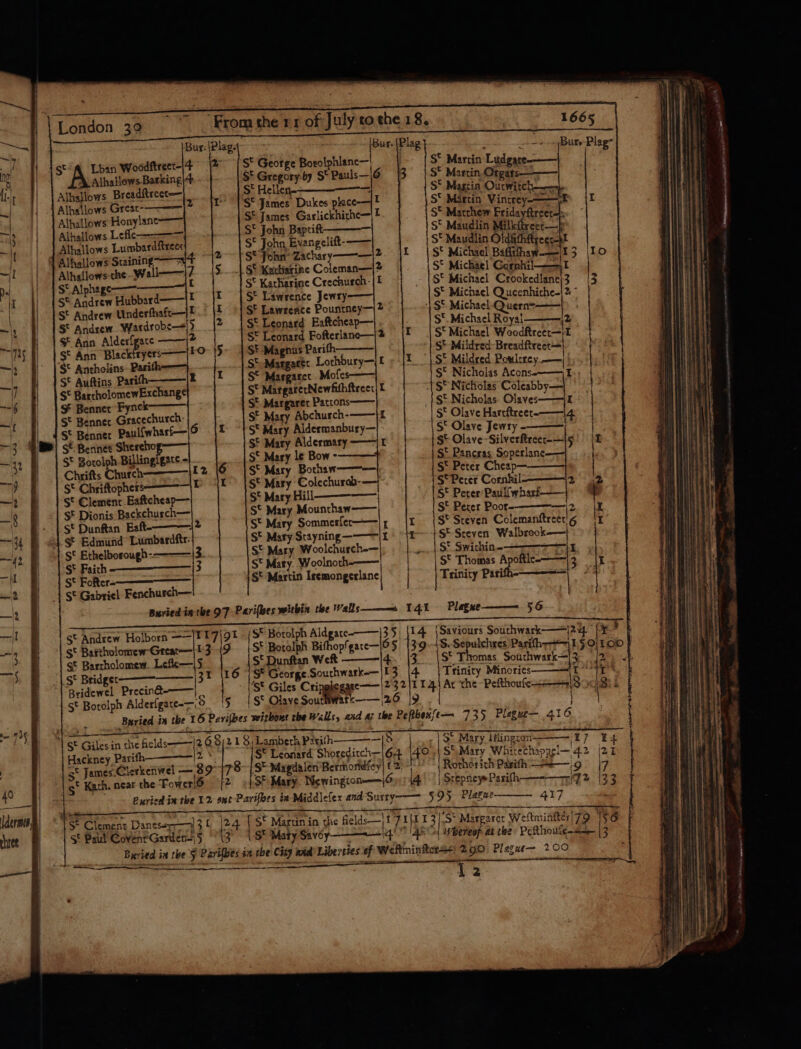 London 39 From the 11 of July to the 18. 1665
Bur. Plag. Bur. Plag. Bur. Plag.
St Alban Woodſtreet— 4 2
Alhallows Barking 4
Alhallows Breadſtreet—
Alhallows Great— 2 1
Alhallows Honylane—
Alhallows Leſſe—
Alhallows Lumbardſtreet
Alhallows Staining— 4 2
Alhallows the Wall— 7 5
St Alphage— 1
St Andrew Hubbard— 1 1
St Andrew Underſhaft— 1 1
St Andrew Wardrobe— 5 2
St Ann Alderſgate— 2
St Ann Blackfryers— 10 5
St Antholins Pariſh—
St Auſtins Pariſh— 1
St BartholomewExchange
St Bennet Fynck—
St Bennet Gracechurch-
St Bennet Paulſwharf— 6 1
St Bennet Sherehog—
St Botolph Billingſgate
Chriſts Church— 12 6
St Chriſtophers— 1
St Clement Eaſtcheap—
St Dionis Backchurch—
St Dunſtan Eaſt— 2
St Edmund Lumbardſtr.
St Ethelborough— 3
St Faith— 3
St Foſter—
St Gabriel Fenchurch—
St George Botolphlane—
St Gregory by St Pauls— 6 3
St Hellen—
St James Dukes place— 1
St James Garlickhithe— 1
St John Baptiſt—
St John Evangeliſt—
St John Zachary— 2 1
St Katharine Coleman— 2
St Katharine Crechurch- 1
St Lawrence Jewry—
St Lawrence Pountney— 2
St Leonard Eaſtcheap—
St Leonard Foſterlane— 2 1
St Magnus Pariſh—
St Margaret Lothbury— 1 1
St Margaret Moſes—
St MargaretNewfiſhſtreet 1
St Margaret Pattons—
St Mary Abchurch— 1
St Mary Aldermanbury—
St Mary Aldermary— 1
St Mary le Bow—
St Mary Bothaw—
St Mary Colechurch—
St Mary Hill—
St Mary Mounthaw—
St Mary Sommerſet— 1 1
St Mary Stayning— 1 1
St Mary Woolchurch—
St Mary Woolnoth—
St Martin Iremongerlane
St Martin Ludgate—
St Martin Orgars—
St Martin Outwitch—
St Martin Vintrey— 1
St Matthew Fridayſtreet—
St Maudlin Milkſtreet—
St Maudlin Oldfiſhſtreet 1
St Michael Baſſiſhaw— 13 10
St Michael Cornhil— 1
St Michael Crookedlane 3 3
St Michael Queenhithe- 2
St Michael Quern—
St Michael Royal— 2
St Michael Woodſtreet— 1
St Mildred Breadſtreet—
St Mildred Poultrey—
St Nicholas Acons— 1
St Nicholas Coleabby—
St Nicholas Olaves— 1
St Olave Hartſtreet— 4
St Olave Jewry—
St Olave Silverſtreet— 5 1
St Pancras Soperlane—
St Peter Cheap—
St Peter Cornhil— 2 2
St Peter Paulſwharf—
St Peter Poor— 2 1
St Steven Colemanſtreet 6 1
St Steven Walbrook—
St Swithin— 1
St Thomas Apoſtle— 3 1
Trinity Pariſh—
Buried in the 97 Pariſhes within the Walls— 141 Plague— 56
St Andrew Holborn— 117 91
St Bartholomew Great— 13 9
St Bartholomew Leſſe— 5
St Bridget— 31 16
Bridewel Precinct—
St Botolph Alderſgate— 8 5
St Botolph Aldgate— 35 14
St Botolph Biſhopſgate— 65 39
St Dunſtan Weſt— 4 3
St George Southwark— 13 4
St Giles Cripplegate— 232 114
St Olave Southwark— 26 9
Saviours Southwark— 24
S. Sepulchres Pariſh— 150 100
St Thomas Southwark— 3
Trinity Minories— 1
At the Peſthouſe— 8 8
Buried in the 16 Pariſhes without the Walls, and at the Peſthouſe— 735 Plague— 416
St Giles in the fields— 268 218
Hackney Pariſh— 2
St James Clerkenwel— 89 78
St Kath. near the Tower 6 2
Lambeth Pariſh— 8
St Leonard Shoreditch— 64 40
St Magdalen Bermondſey 12
St Mary Newington— 6 4
St Mary Iſlington— 17 14
St Mary Whitechappel— 42 21
Rothorith Pariſh— 9 7
Stepney Pariſh— 72 33
Buried in the 12 out Pariſhes in Middleſex and Surry— 595 Plague— 417
St Clement Danes— 31 24
St Paul Covent Garden— 5 3
St Martin in the fields— 171 113
St Mary Savoy— 4 4
St Margaret Weſtminſter 79 56
Whereof at the Peſthouſe— 3
Buried in the 5 Pariſhes in the City and Liberties of Weſtminſter— 290 Plague— 200
I 2